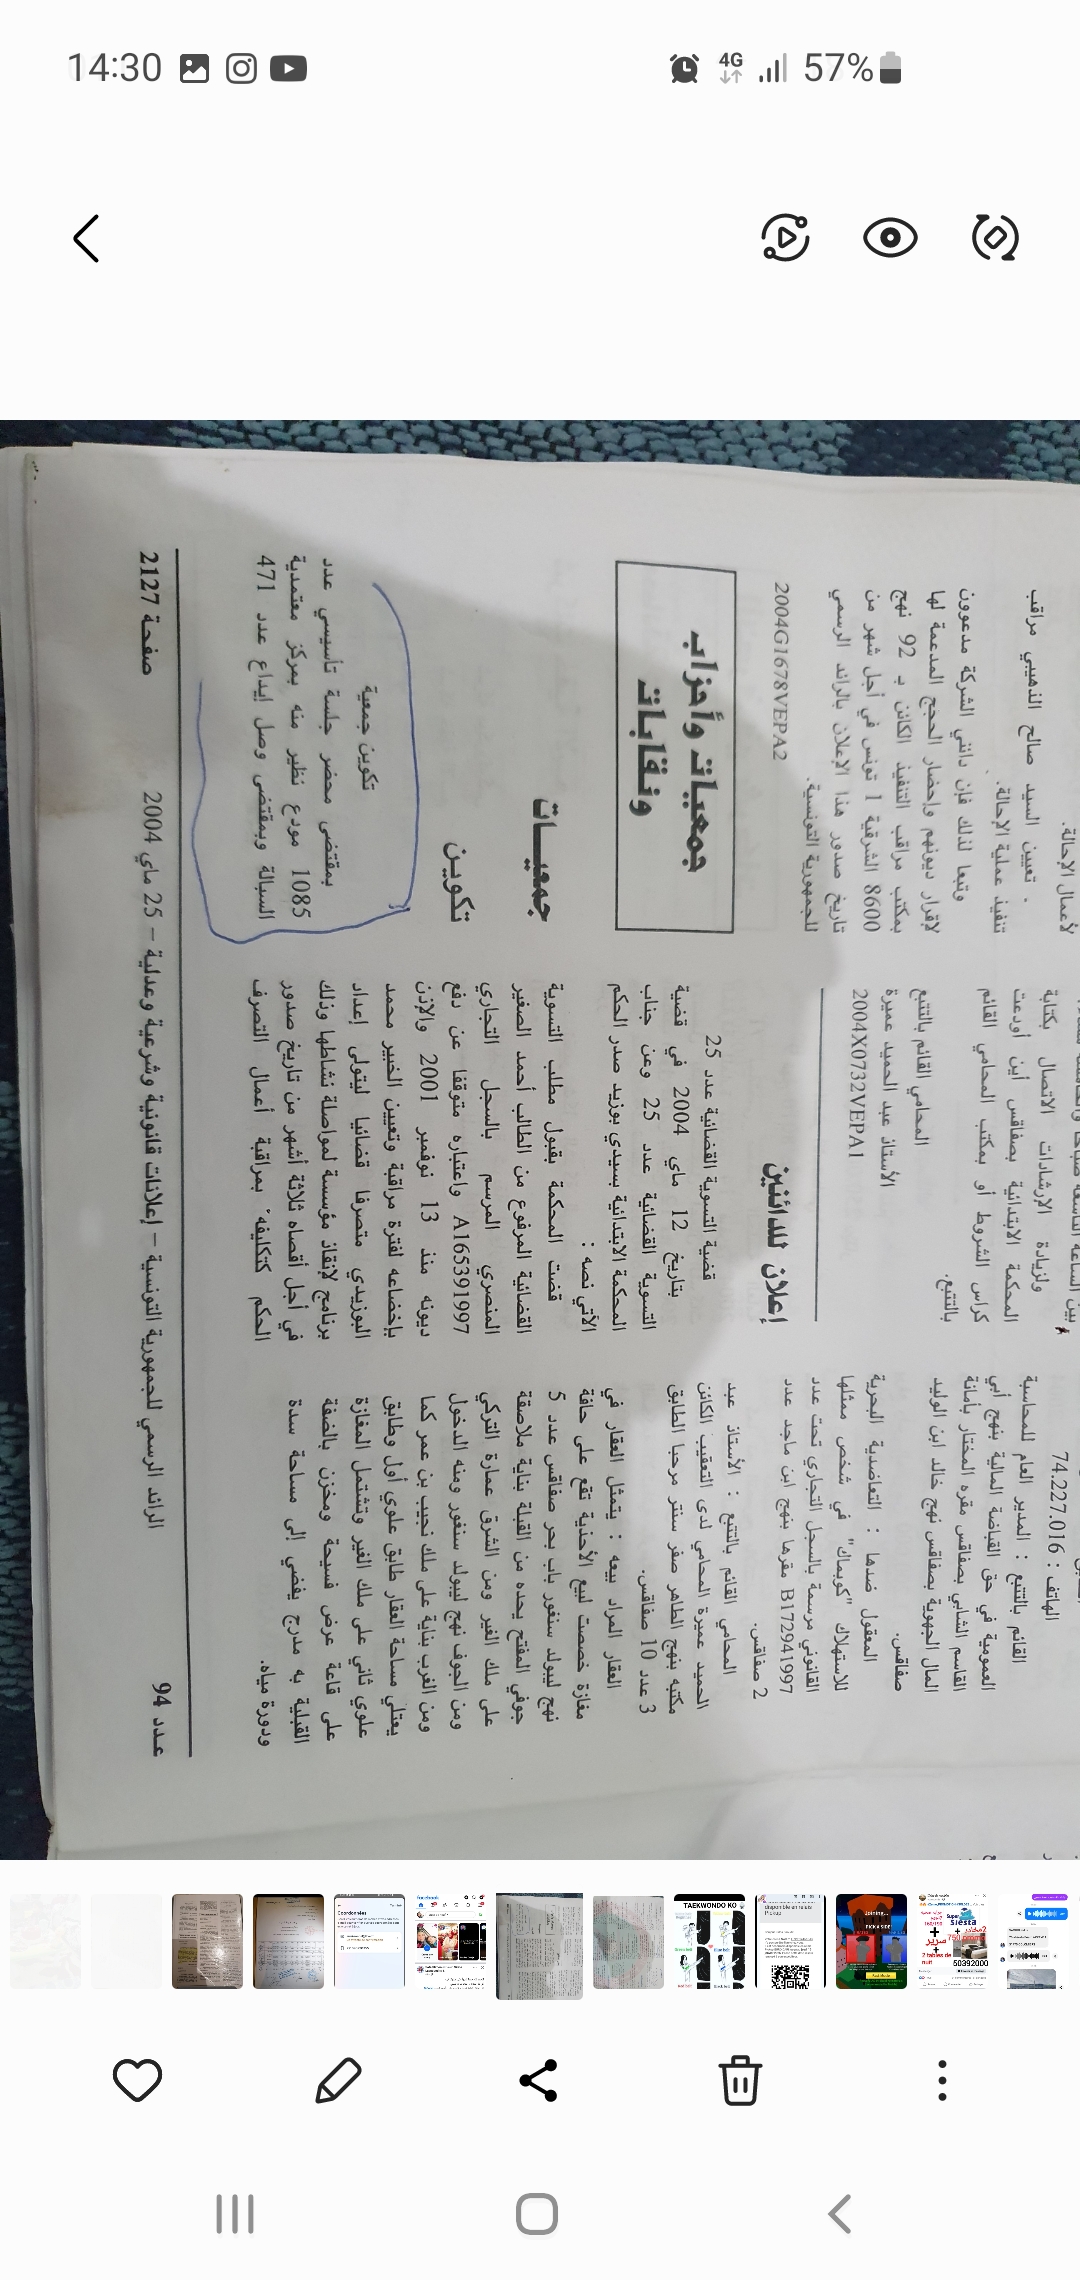 14:30
4G
57%
لأعمال الإحالة.
- تعيين السيد صالح الذهيبي مراقب
تنفيذ عملية الإحالة.
وتبعا لذلك فإن دائني الشركة مدعوون
لإقرار ديونهم وإحضار الحجج المدعمة لها
بمكتب مراقب التنفيذ الكائن بـ 92 نهج
8600 الشرقية 1 تونس في أجل شهر من
تاريخ صدور هذا الإعلان بالرائد الرسمي
للجمهورية التونسية.
2004G1678VEPA2
جمعيات وأحزاب
ونقابات
جمعيــات
تكوين
تكوين جمعية
بمقتضى محضر جلسة تأسيسي عدد
1085 مودع نظير منه بمركز معتمدية
السبالة وبمقتضى وصل إيداع عدد 471
بين الساعة التاسعة صباحا
ولزيادة الإرشادات الاتصال بكتابة
المحكمة الابتدائية بصفاقس أين أودعت
كراس الشروط أو بمكتب المحامي القائم
بالتتبع.
المحامي القائم بالتتبع
الأستاذ عبد الحميد عميرة
2004X0732VEPA1
إعلان للدائنين
قضية التسوية القضائية عدد 25
بتاريخ 12 ماي 2004 في قضية
التسوية القضائية عدد 25 وعن جناب
المحكمة الابتدائية بسيدي بوزيد صدر الحكم
الآتي نصه :
قضت المحكمة بقبول مطلب التسوية
القضائية المرفوع من الطالب أحمد الصغير
المنصري المرسم بالسجل التجاري
A165391997 واعتباره متوقفا عن دفع
ديونه منذ 13 نوفمبر 2001 والإذن
بإخضاعه لفترة مراقبة وتعيين الخبير محمد
البوزيدي متصرفا قضائيا ليتولى إعداد
برنامج لإنقاذ مؤسسة لمواصلة نشاطها وذلك
في أجل أقصاه ثلاثة أشهر من تاريخ صدور
الحكم كتكليفه بمراقبة أعمال التصرف
الهاتف : 74.227.016
القائم بالتتبع : المدير العام للمحاسبة
العمومية في حق القباضة المالية بنهج أبي
القاسم الشابي بصفاقس مقره المختار بأمانة
المال الجهوية بصفاقس نهج خالد ابن الوليد
صفاقس.
المعقول ضدها : التعاضدية البحرية
للاستهلاك "كوبماك" في شخص ممثلها
القانوني مرسمة بالسجل التجاري تحت عدد
B172941997 مقرها بنهج ابن ماجد عدد
2 صفاقس.
المحامي القائم بالتتبع : الأستاذ عبد
الحميد عميرة المحامي لدى التعقيب الكائن
مكتبه بنهج الطاهر صفر سنتر مرحبا الطابق
3 عدد 10 صفاقس.
العقار المراد بيعه : يتمثل العقار في
مغازة خصصت لبيع الأحذية تقع على حافة
نهج ليبولد سنغور باب بحر صفاقس عدد 5
جوفي المفتح يحده من القبلة بناية ملاصقة
على ملك الغير ومن الشرق عمارة التركي
ومن الجوف نهج ليبولد سنغور ومنه الدخول
ومن الغرب بناية على ملك نجيب بن عمر كما
يعتلي مساحة العقار طابق علوي أول وطابق
علوي ثاني على ملك الغير وتشتمل المغازة
على قاعة عرض فسيحة ومخزن بالضفة
القبلية به مدرج يفضي إلى مساحة سدة
ودورة مياه.
عـدد 94
الرائد الرسمي للجمهورية التونسية – إعلانات قانونية وشرعية وعدلية – 25 ماي 2004
صفحة 2127
Coordonnées
facebook
TAEKWONDO KO
disponible en relais
Pickup
Joining...
PICK A SIDE
Super
siesta
750
سرير
2 tables de
nuit
50392000